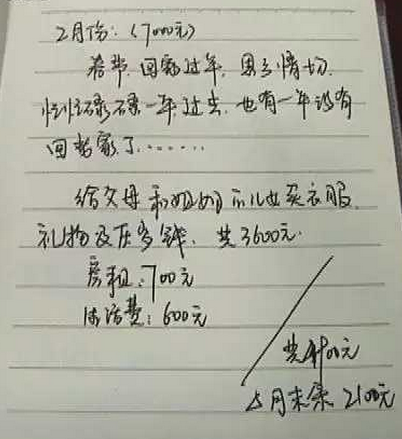 2月份:(7000元)
春节,回家过年,思乡情切,
忙忙碌碌一年过去,也有一年没有
回家了......
给父母和姐姐 儿女买衣服,
礼物及压岁钱,共3600元.
房租:700元
生活费:600元
共4900元
月末余 2100元